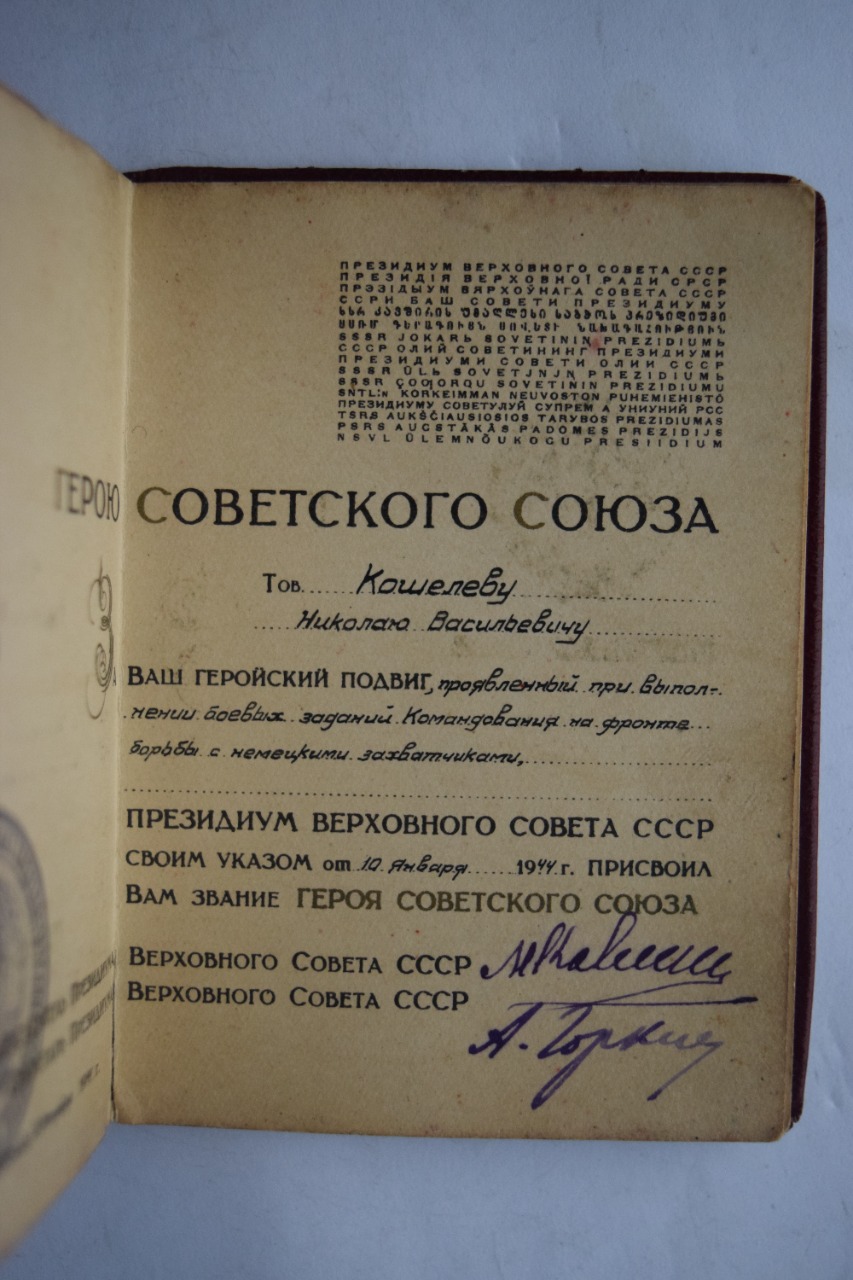 ПРЕЗИДИУМ ВЕРХОВНОГО СОВЕТА СССР
ПРЕЗИДІЯ ВЕРХОВНОЇ РАДИ СРСР
ПРЭЗІДЫУМ ВЯРХОЎНАГА СОВЕТА СССР
ССРИ БАШ СОВЕТИ ПРЕЗИДИУМУ
ՍՍՌՄ ԳԵՐԱԳՈՒՅՆ ՍՈՎԵՏԻ ՆԱԽԱԳԱՀՈՒԹՅՈՒՆ
SSSR JOKARЬ SOVETININ PREZIDIUMЬ
СССР ОЛИЙ СОВЕТИНИНГ ПРЕЗИДИУМИ
ПРЕЗИДИУМИ СОВЕТИ ОЛИИ СССР
SSSR ÜLЬ SOVETJNJN PREZIDIUMЬ
SSSR ÇOƢORQU SOVETININ PREZIDIUMU
SNTL:n KORKEIMMAN NEUVOSTON PUHEMIEHISTÖ
ПРЕЗИДИУМУ СОВЕТУЛУЙ СУПРЕМ А УНИУНИЙ РСС
TSRS AUKŠČIAUSIOSIOS TARYBOS PREZIDIUMAS
PSRS AUGSTĀKĀS PADOMES PREZIDIJS
NSVL ÜLEMNÕUKOGU PRESIIDIUM
ГЕРОЮ СОВЕТСКОГО СОЮЗА
Тов. Кошелеву
Николаю Васильевичу
ВАШ ГЕРОЙСКИЙ ПОДВИГ, проявленный при выпол-
нении боевых заданий Командования на фронте
борьбы с немецкими захватчиками,
ПРЕЗИДИУМ ВЕРХОВНОГО СОВЕТА СССР
СВОИМ УКАЗОМ от 10 января 1944 г. ПРИСВОИЛ
ВАМ ЗВАНИЕ ГЕРОЯ СОВЕТСКОГО СОЮЗА
ВЕРХОВНОГО СОВЕТА СССР МКалинин
ВЕРХОВНОГО СОВЕТА СССР
А. Горкин